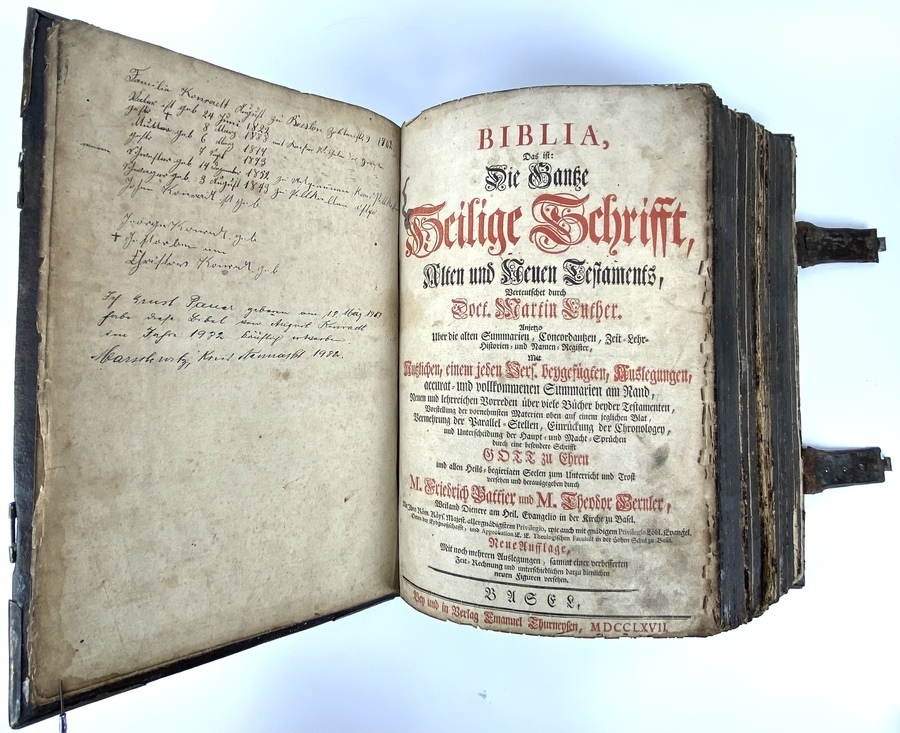 Familie Konradt August zu Breslau
Vater ist geb 24 Juni 1823
geste 8 März 1888 mit Kaiser Wilhelm der
Mutter geb 6 März 1819
geste 7 Sept 1873
Schwester geb 14 1852 zu
Schwager geb 3 August 1843 zu
John Konradt ist geb
Konradt geb
+ gestorben am
Christian Konradt geb
Ich Ernst Pauer geboren am 18. März
habe diese Bibel von August Konradt
im Jahre 1932 käuflich erworben
Kreis Neumarkt 1932.
BIBLIA,
Das ist:
Die Gantze
Heilige Schrifft,
Alten und Neuen Testaments,
Verteutschet durch
Doct. Martin Luther.
Anjetzo
Uber die alten Summarien, Concordantzen, Zeit-Lehr-
Historien- und Namen-Register,
Mit
Nutzlichen, einem jeden Vers beygefügten, Auslegungen,
accurat- und vollkommenen Summarien am Rand,
Neuen und lehrreichen Vorreden über viele Bücher beyder Testamenten,
Vorstellung der vornehmsten Materien oben auf einem jeglichen Blat,
Vermehrung der Parallel-Stellen, Einrückung der Chronologey,
und Unterscheidung der Haupt- und Macht-Sprüchen
durch eine besondere Schrifft
GOTT zu Ehren
und allen Heils-begierigen Seelen zum Unterricht und Trost
versehen und herausgegeben durch
M. Friedrich Battier und M. Theodor Gernler,
Weiland Dienere am Heil. Evangelio in der Kirche zu Basel.
Mit Ihro Röm. Käys. Majest. allergnädigstem Privilegio, wie auch mit gnädigem Privilegio Löbl. Evangel.
Orten der Eydgnoßschafft, und Approbation E. E. Theologischen Facultät in der Hohen Schul zu Basel.
Neue Aufflage,
Mit noch mehrern Auslegungen, sammt einer verbesserten
Zeit-Rechnung und unterschiedlichen darzu dienlichen
neuen Figuren versehen.
BASEL,
Bey und in Verlag Emanuel Thurneysen, MDCCLXVII.